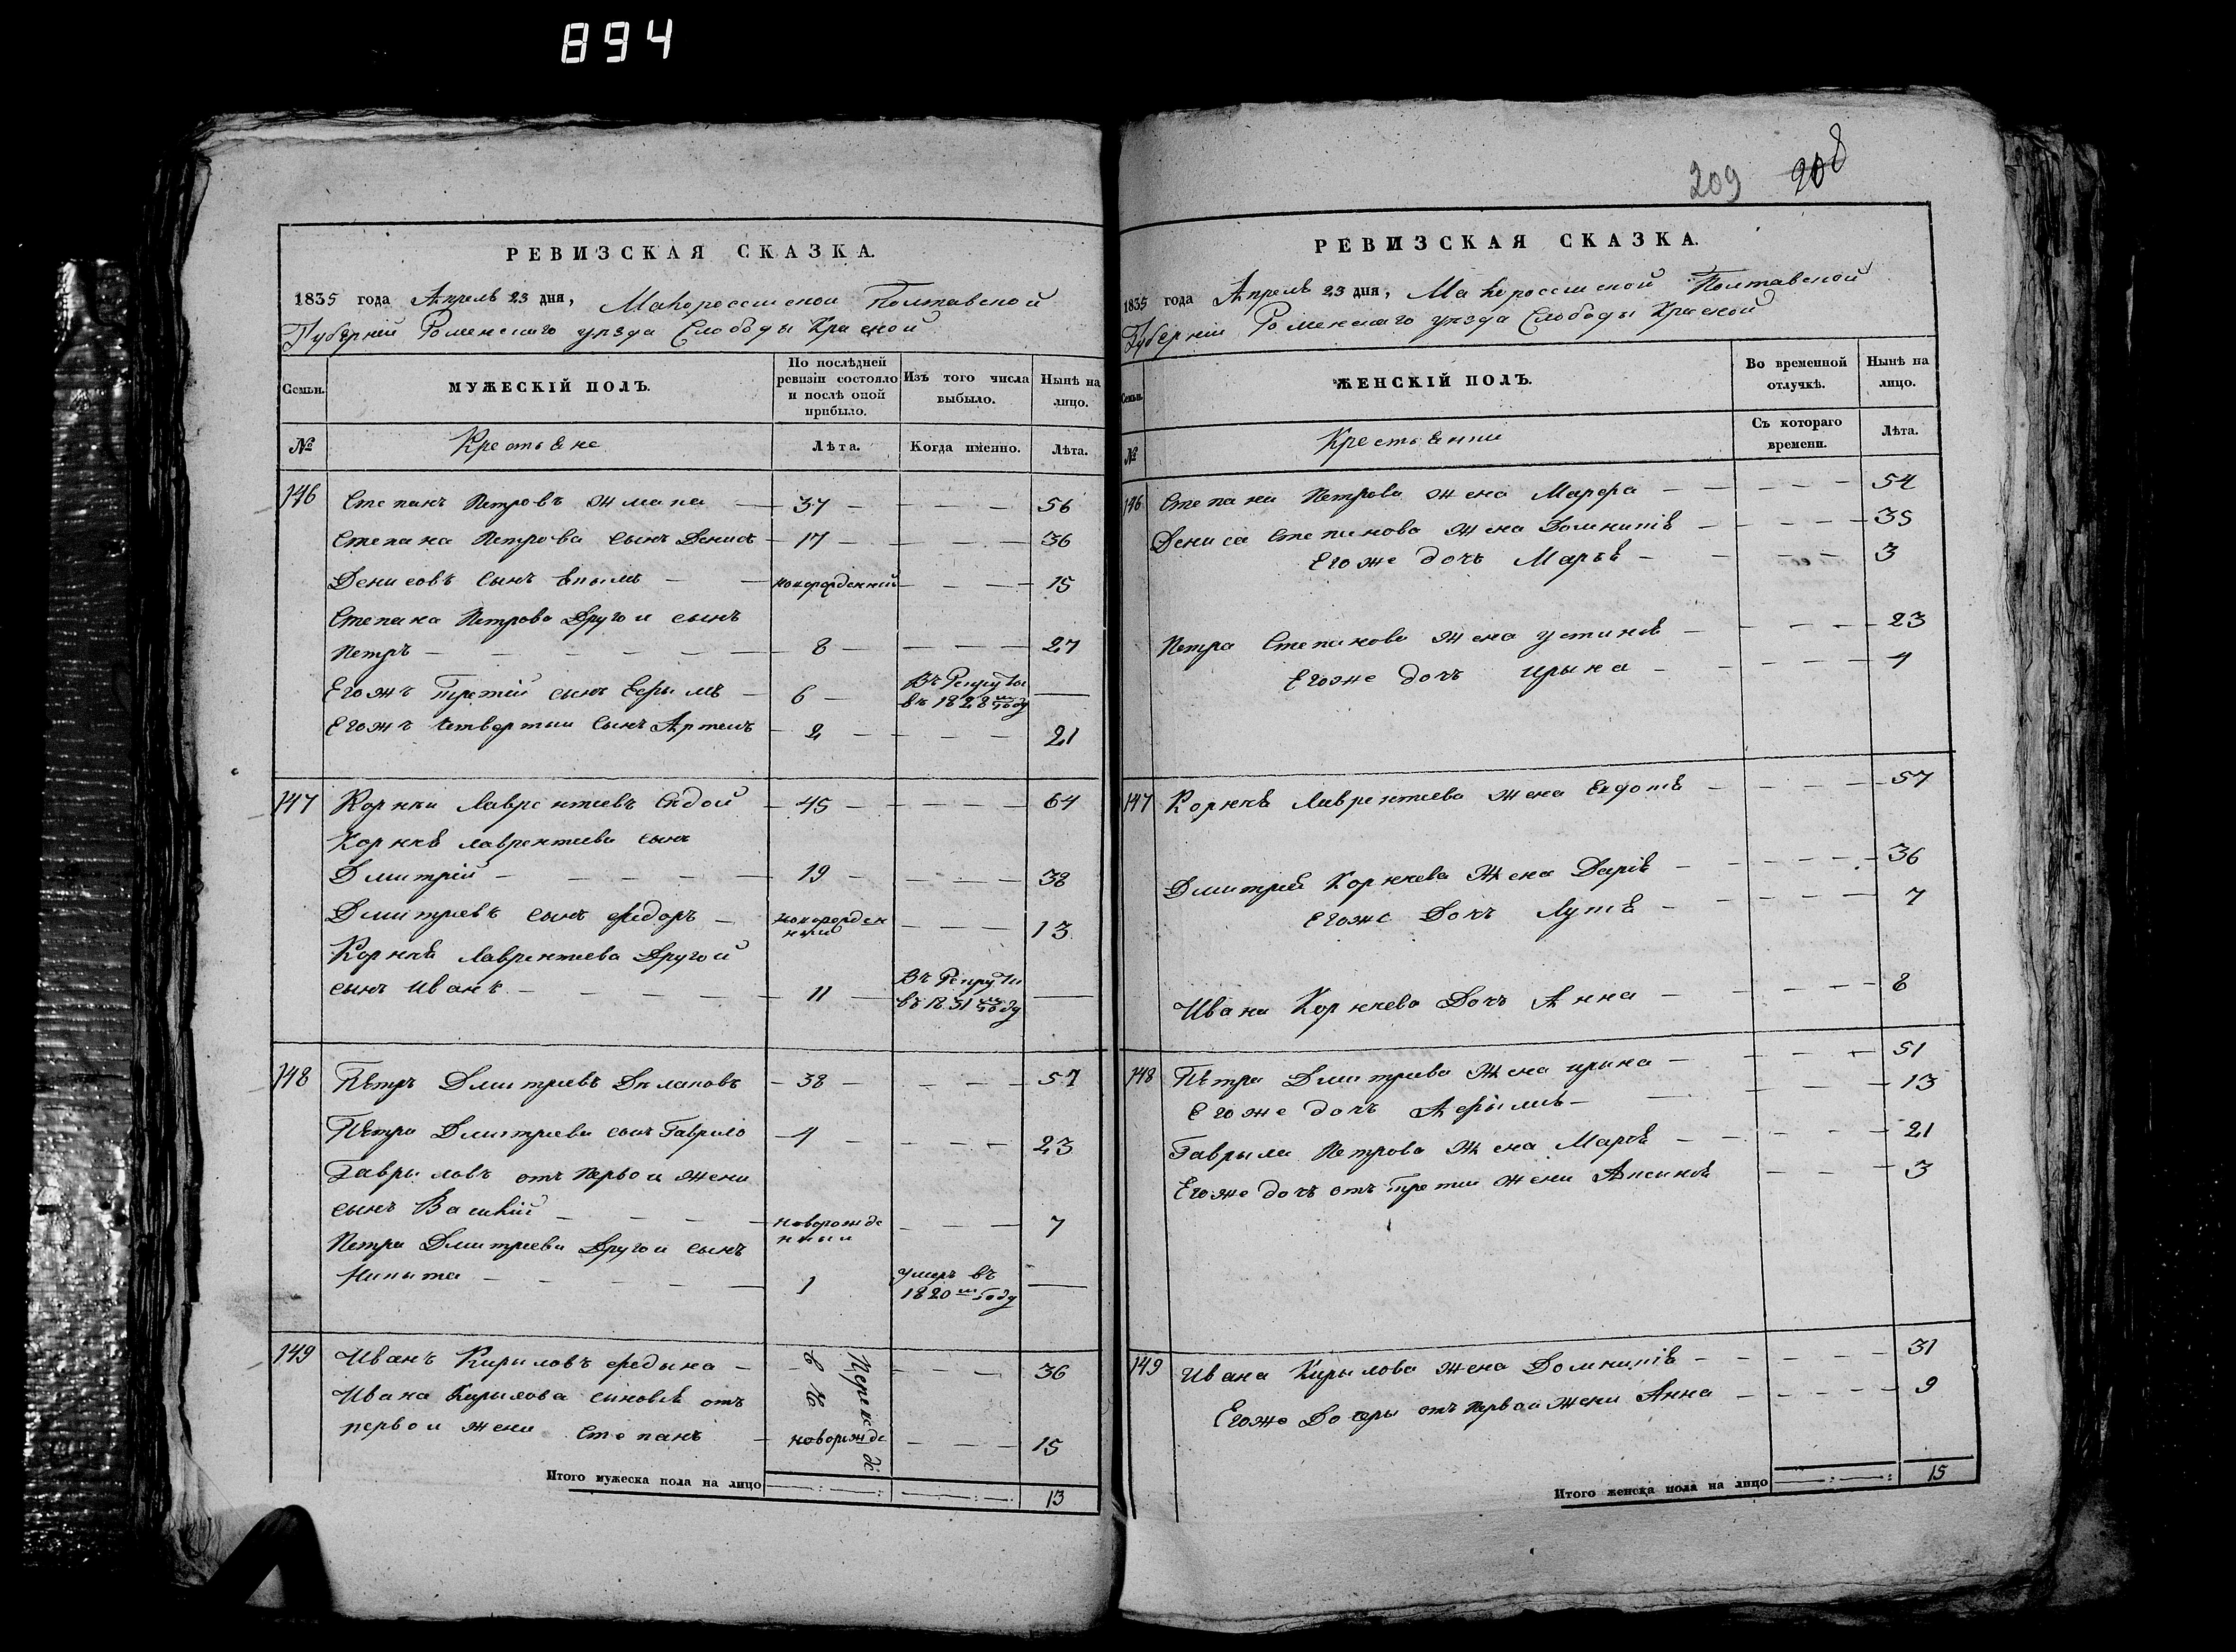 894
РЕВИЗСКАЯ СКАЗКА.
1835 года Апрель 23 дня, Малороссийской Полтавской
Губерніи Роменскаго уезда Слободы Красной
Семьи.
МУЖЕСКІЙ ПОЛЪ.
По послѣдней ревизіи состояло и послѣ оной прибыло.
Изъ того числа выбыло.
Нынѣ на лицо.
№
Крестьяне
Лѣта.
Когда именно.
Лѣта.
146 Степанъ Петровъ — 37 — — — — 56
Степана Петрова сынъ Денисъ — 17 — — — — 36
Денисовъ сынъ — — — — — 15
Степана Петрова Другои сынъ
Петръ — — — — — — 8 — — — — 27
Егожъ Третій сынъ Ефимъ — 6 — Въ Рекруты
въ 1828 м году —
Егожъ Четвертыи сынъ Артемъ — 2 — — — — 21
147 Корнѣи Лаврентиевъ — 45 — — — — 64
Корнѣя Лаврентиева сынъ
Дмитрій — — — — — 19 — — — — 38
Дмитриевъ сынъ Федоръ — новорожден
ныи — — — 13
Корнѣя Лаврентиева Другои
сынъ Иванъ — — — — — — 11 — Въ Рекруты
въ 1831 м году —
148 Пѣтръ Дмитриевъ — 38 — — — — 57
Пѣтра Дмитриева сынъ Гаврило — 4 — — — — 23
Гавриловъ отъ первои жени
сынъ Василій — — — — новорожде
нныи — — — 7
Петра Дмитриева Другои сынъ
Никита — — — — — 1 умеръ въ
1820 м Году —
149 Иванъ Кириловъ Федына — — — 36
Ивана Кирилова синовѣ отъ
первои жени Степанъ — новорожде — — — 15
Итого мужеска пола на лицо 13
209 208
РЕВИЗСКАЯ СКАЗКА.
1835 года Апрель 23 дня, Малороссийской Полтавской
Губерніи Роменскаго уезда Слободы Красной
Семьи.
ЖЕНСКІЙ ПОЛЪ.
Во временной отлучкѣ.
Нынѣ на лицо.
№
Крестьянки
Съ котораго времени.
Лѣта.
146 Степана Петрова жена Марфа — — — — — 54
Дениса Степанова жена Домникіѣ — — — — — 35
Егоже дочь Марьѣ — — — — 3
Петра Степанова жена Устинѣ — — — — 23
Егоже дочь Ирына — — — — — 4
147 Корнѣя Лаврентиева жена Евдотѣ — — — — — 57
Дмитрія Корнѣева жена Даріѣ — — — — — 36
Егоже Дочь — — — — — 7
Ивана Корнѣева Дочь Анна — — — — — 8
148 Пѣтра Дмитриева жена Ирина — — — — 51
Егоже дочь — — — — 13
Гаврыла Петрова жена — — — — 21
Егоже дочь отъ третіи жени Аксинѣ — — — 3
149 Ивана Кирылова жена Домникіѣ — — — — — 31
Егоже Дочеры отъ первои жени Анна — — — — — 9
Итого женска пола на лицо 15